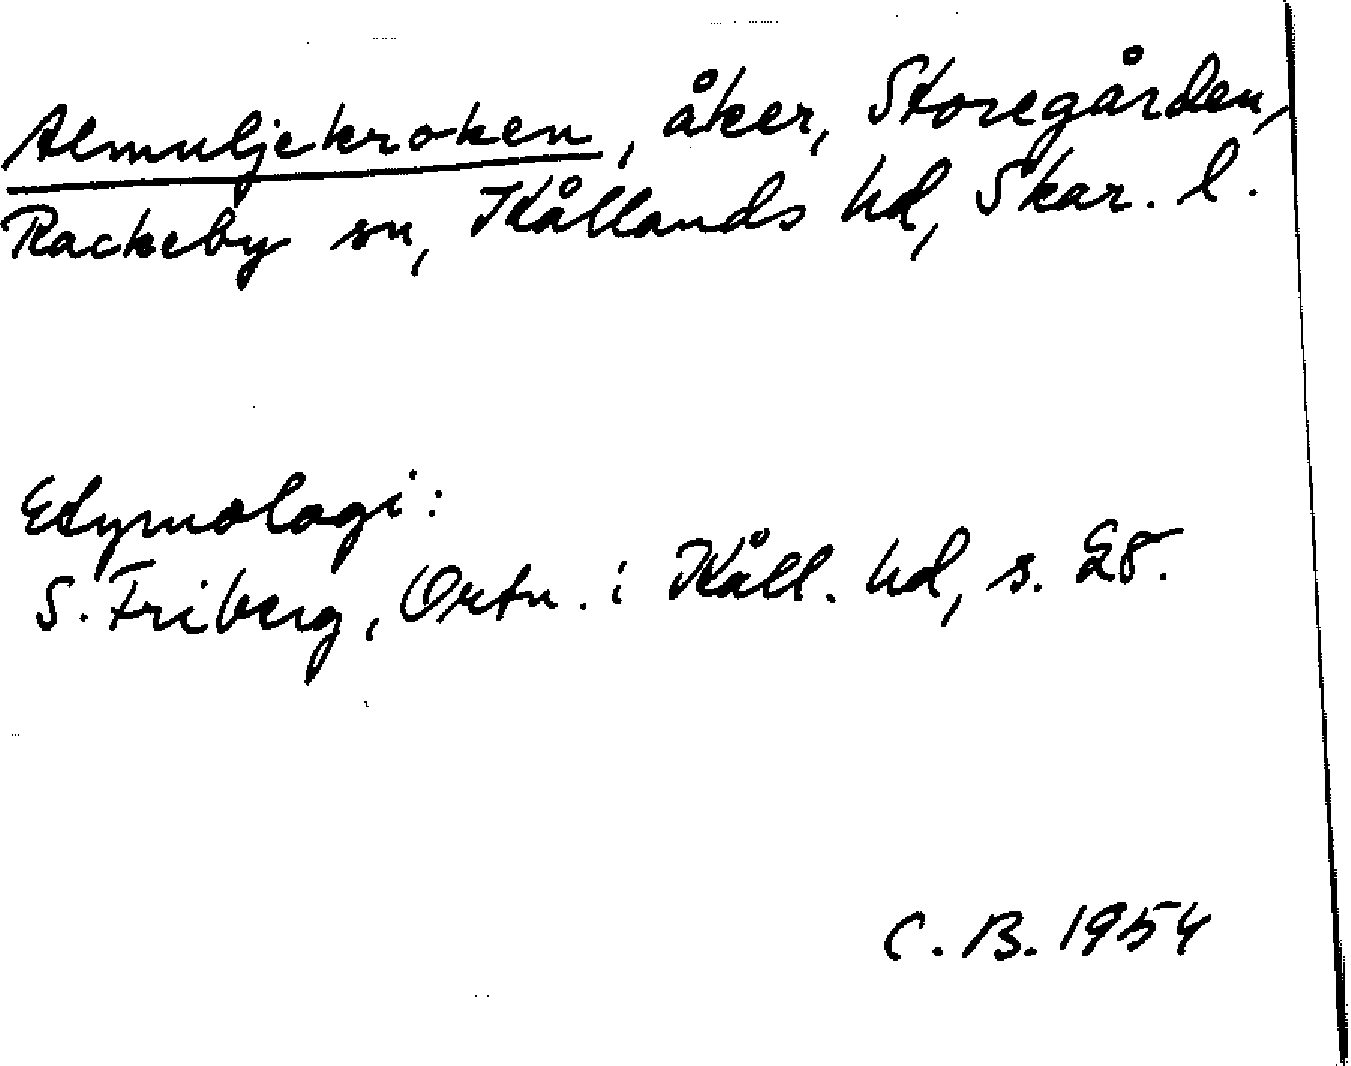 Almuljekroken, åker, Storegården,
Rackeby sn, Kållands hd, Skar. l.
Etymologi:
S. Friberg, Ortn. i Kåll. hd, s. 28.
C. B. 1954